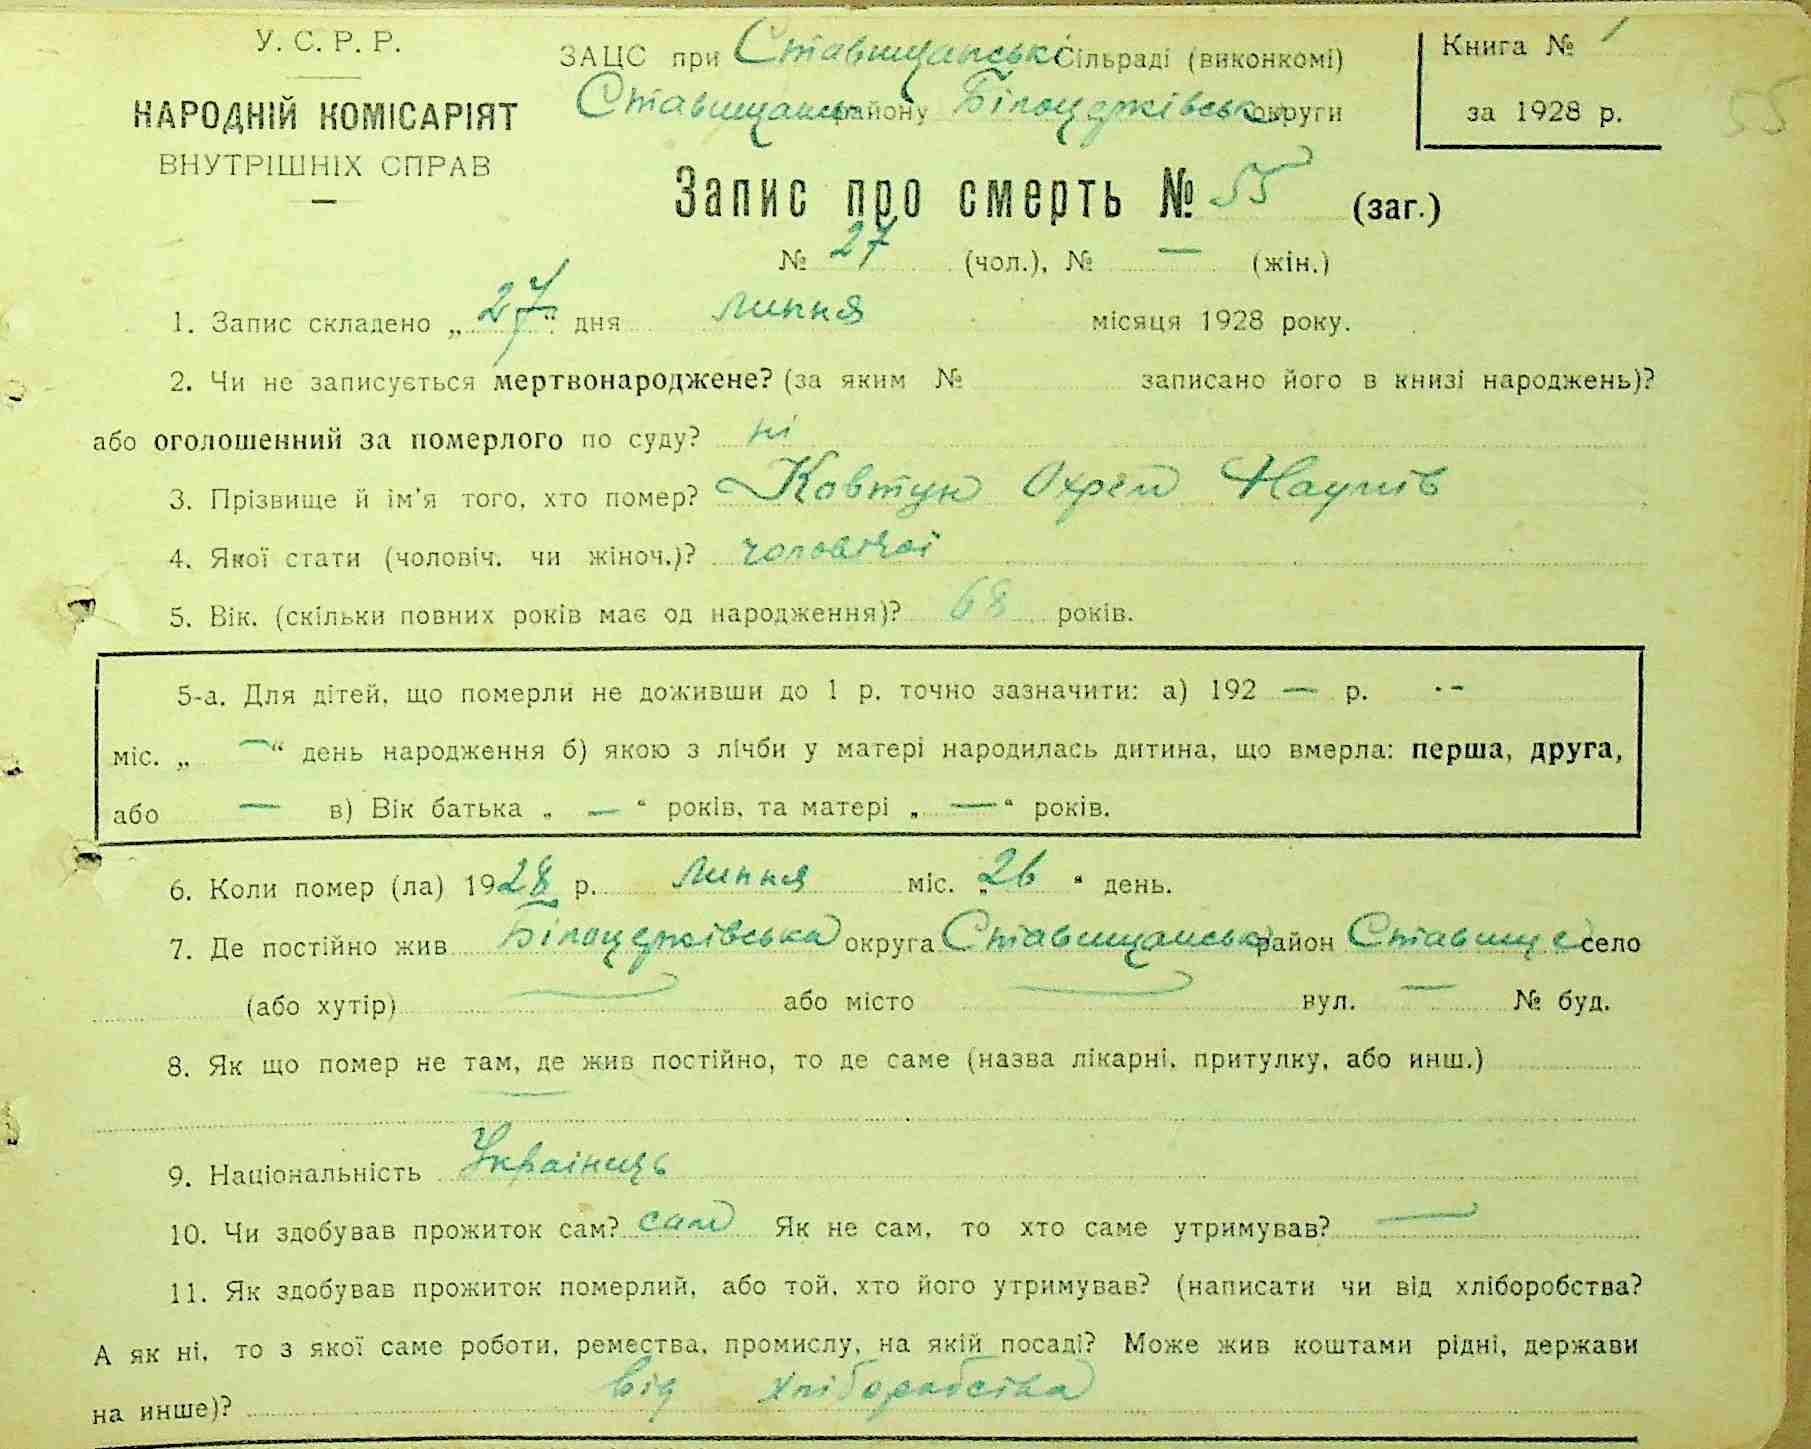 У. С. Р. Р.
НАРОДНІЙ КОМІСАРІЯТ
ВНУТРІШНІХ СПРАВ
ЗАЦС при Ставищанські Сільраді (виконкомі)
Ставищансько району Білоцерківсько округи
Книга № 1
за 1928 р.
55
Запис про смерть № 55 (заг.)
№ 27 (чол.), № — (жін.)
1. Запис складено „27“ дня липня місяця 1928 року.
2. Чи не записується мертвонароджене? (за яким № записано його в книзі народжень)?
або оголошенний за померлого по суду? ні
3. Прізвище й ім'я того, хто помер? Ковтун Охрем Наумів
4. Якої стати (чоловіч. чи жіноч.)? чоловічої
5. Вік. (скільки повних років має од народження)? 68 років.
5-а. Для дітей, що померли не доживши до 1 р. точно зазначити: а) 192 — р. -
міс. „ — “ день народження б) якою з лічби у матері народилась дитина, що вмерла: перша, друга,
або — в) Вік батька „ — “ років, та матері „ — “ років.
6. Коли помер (ла) 1928 р. липня міс. „26“ день.
7. Де постійно жив Білоцерківська округа Ставищанські район Ставище село
(або хутір) — або місто — вул. — № буд.
8. Як що помер не там, де жив постійно, то де саме (назва лікарні, притулку, або инш.)
—
9. Національність Українець
10. Чи здобував прожиток сам? сам Як не сам, то хто саме утримував? —
11. Як здобував прожиток померлий, або той, хто його утримував? (написати чи від хліборобства?
А як ні, то з якої саме роботи, ремества, промислу, на якій посаді? Може жив коштами рідні, держави
на инше)? від хліборобства